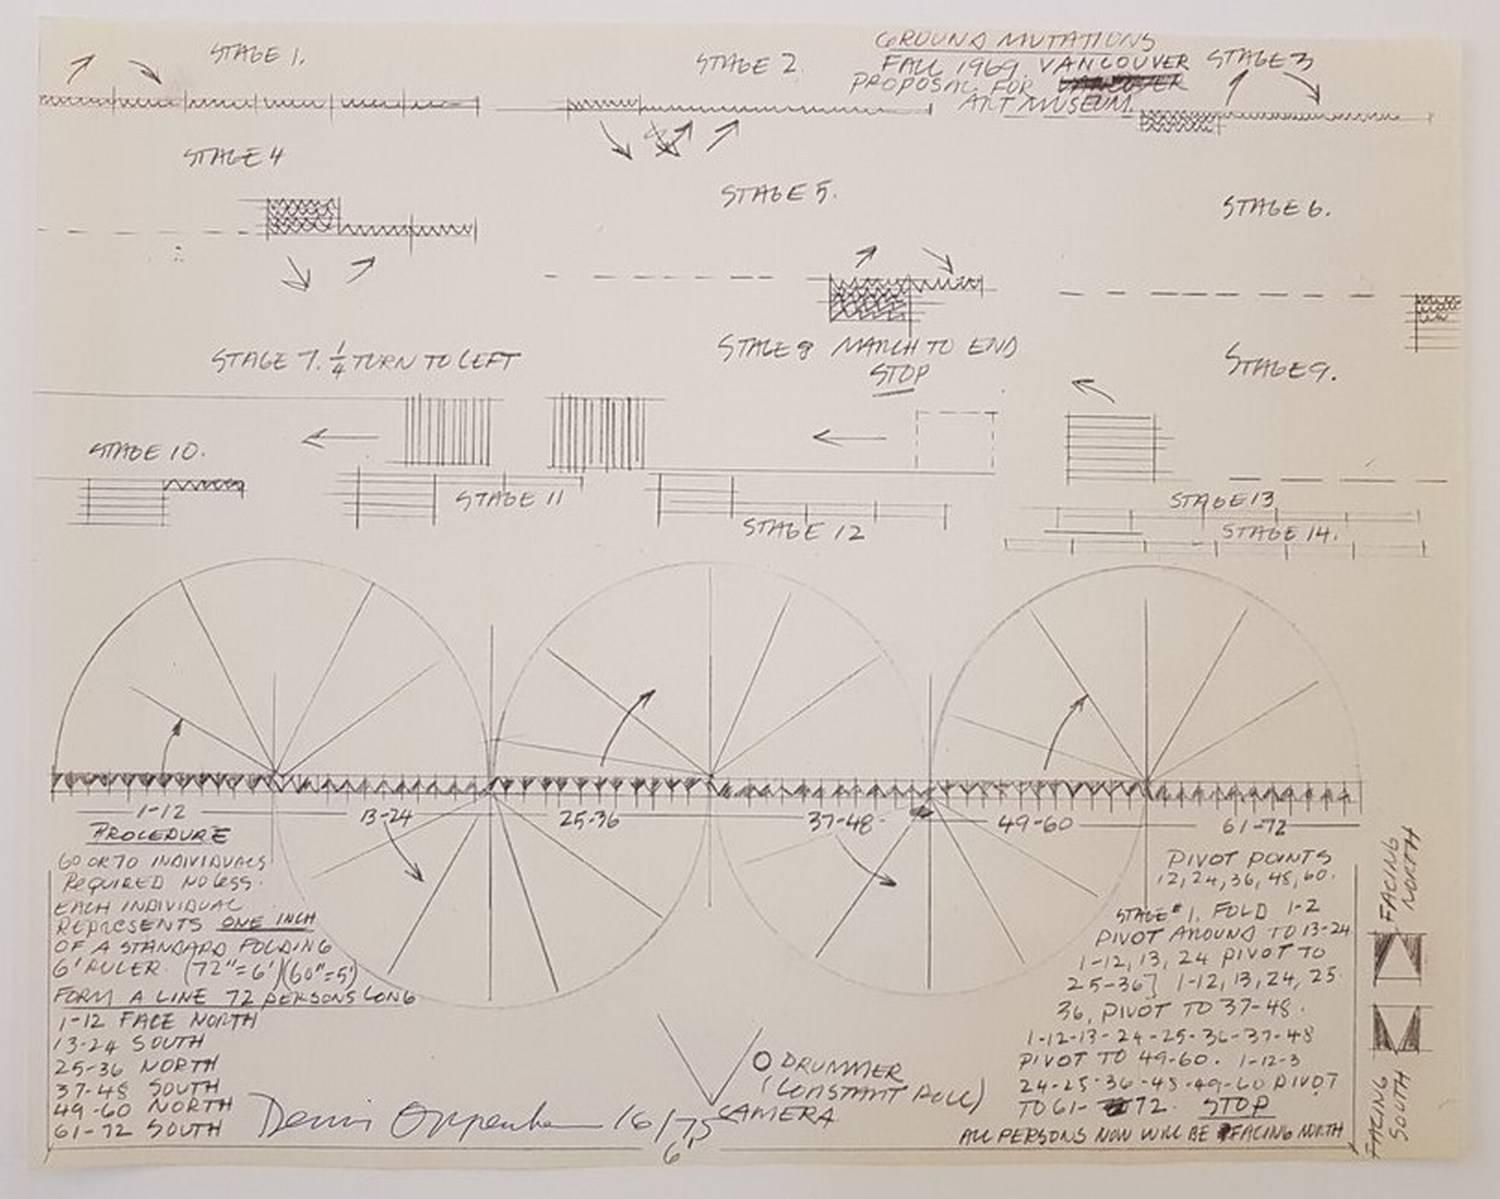 STAGE 1.
STAGE 2
GROUND MUTATIONS
FALL 1969 VANCOUVER
PROPOSAL FOR
ART MUSEUM.
STAGE 3
STAGE 4
STAGE 5.
STAGE 6.
STAGE 7. 1/4 TURN TO LEFT
STAGE 8 MARCH TO END
STOP
STAGE 9.
STAGE 10.
STAGE 11
STAGE 12
STAGE 13
STAGE 14.
1-12
13-24
25-36
37-48
49-60
61-72
PROCEDURE
60 OR 70 INDIVIDUALS
REQUIRED NO LESS.
EACH INDIVIDUAL
REPRESENTS ONE INCH
OF A STANDARD FOLDING
6' RULER. (72"=6')(60"=5')
FORM A LINE 72 PERSONS LONG
1-12 FACE NORTH
13-24 SOUTH
25-36 NORTH
37-48 SOUTH
49-60 NORTH
61-72 SOUTH
Dennis Oppenheim 16/75
6'
O DRUMMER
(CONSTANT ROLL)
CAMERA
PIVOT POINTS
12, 24, 36, 48, 60.
STAGE # 1. FOLD 1-2
PIVOT AROUND TO 13-24
1-12, 13, 24 PIVOT TO
25-36] 1-12, 13, 24, 25
36, PIVOT TO 37-48.
1-12-13-24-25-36-37-48
PIVOT TO 49-60. 1-12-3
24-25-36-48-49-60 PIVOT
TO 61-72. STOP
ALL PERSONS NOW WILL BE FACING NORTH
FACING
NORTH
FACING
SOUTH